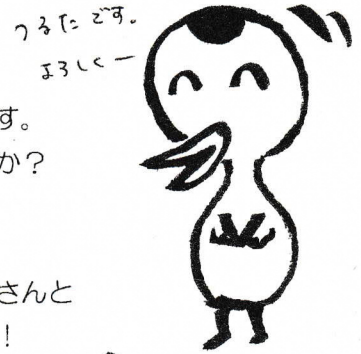 つるたです。
よろしくー
す。
か？
さんと
！